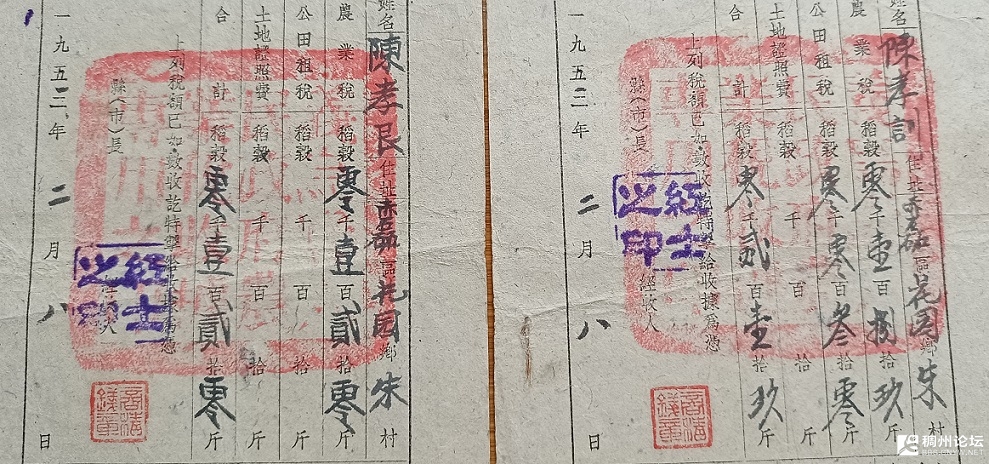 姓名 陳孝言 住址 赤磊 區 花園 鄉 朱 村
農業稅 稻穀 零千壹百捌拾玖斤
公田租稅 稻穀 零千零百叁拾零斤
土地證照費 稻穀 千百拾斤
合計 稻穀 零千貳百壹拾玖斤
上列稅額已如數收訖特 給收據爲憑
縣(市)長 經收人
一九五三年二月八日
紅士之印
姓名 陳孝艮 住址 赤磊 區 花园 鄉 朱 村
農業稅 稻穀 零千壹百貳拾零斤
公田租稅 稻穀 千百拾斤
土地證照費 稻穀 千百拾斤
合計 稻穀 零千壹百貳拾零斤
上列稅額已如數收訖特 給 爲憑
縣(市)長
一九五三年二月八日
紅士之印
稠州论坛
BBS.CNYW.NET